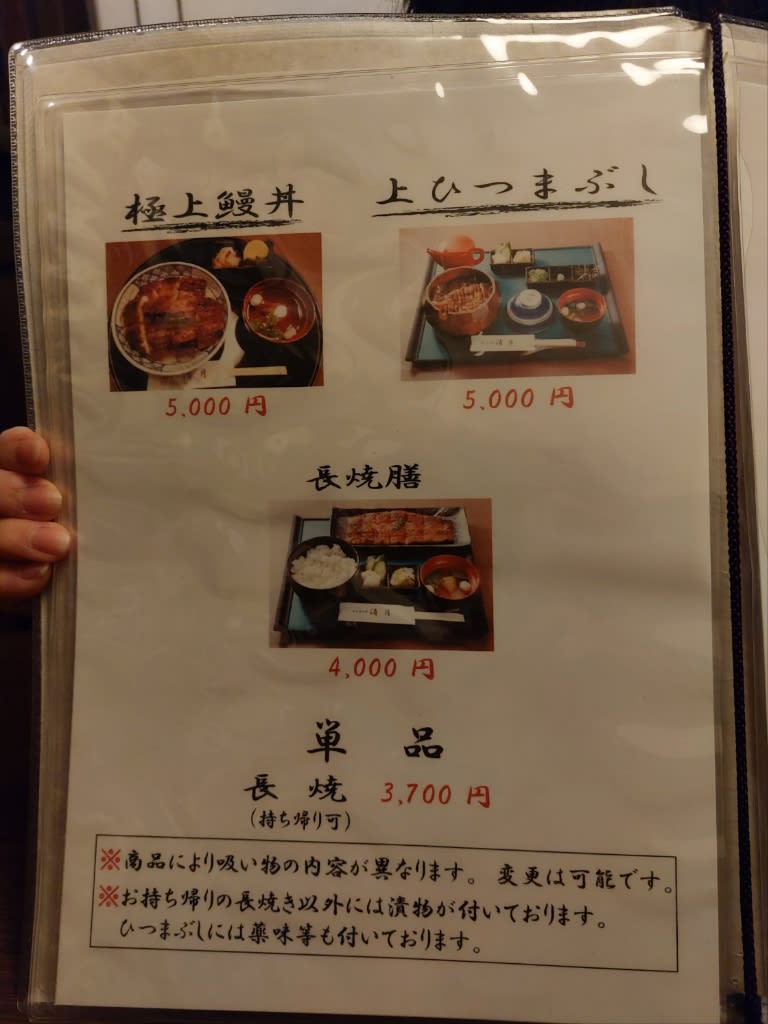 極上鰻丼
上ひつまぶし
5,000 円
5,000 円
長焼膳
4,000 円
単 品
長 焼 3,700 円
(持ち帰り可)
※商品により吸い物の内容が異なります。 変更は可能です。
※お持ち帰りの長焼き以外には漬物が付いております。
ひつまぶしには薬味等も付いております。